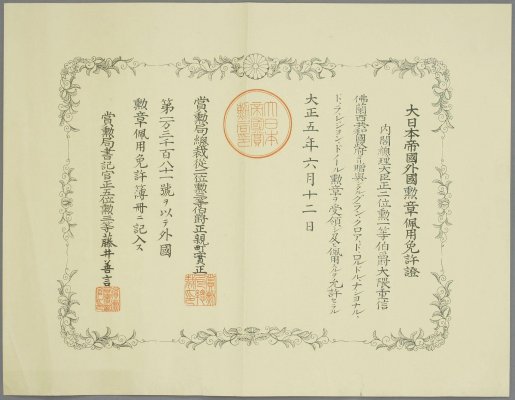 大日本帝國外國勲章佩用免許證
内閣總理大臣正二位勲一等伯爵大隈重信
佛蘭西共和國政府ヨリ贈與シタルグラン、クロアー、ド、ロルドル、ナショナル、
ド、ラ、レジョン、ドノール勲章ヲ受領シ及ヒ佩用スルヲ允許セラル
大正五年六月十二日
大日本
帝國賞
勲局印
賞勲局總裁從二位勲一等伯爵正親町實正
第一万三千百八十一號ヲ以テ外國
勲章佩用免許簿冊ニ記入ス
賞勲局書記官正五位勲三等藤井善言